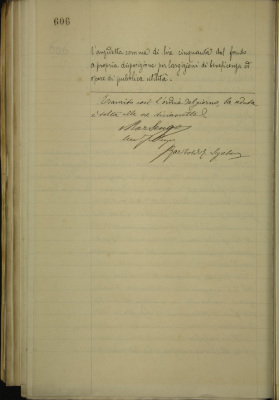 606
l'anzidetta somma di lire cinquanta dal fondo
a propria disposizione per largizioni di beneficenza ed
opere di pubblica utilità.
Esaurito così l'ordine del giorno, la seduta
è sciolta alle ore diciassette.